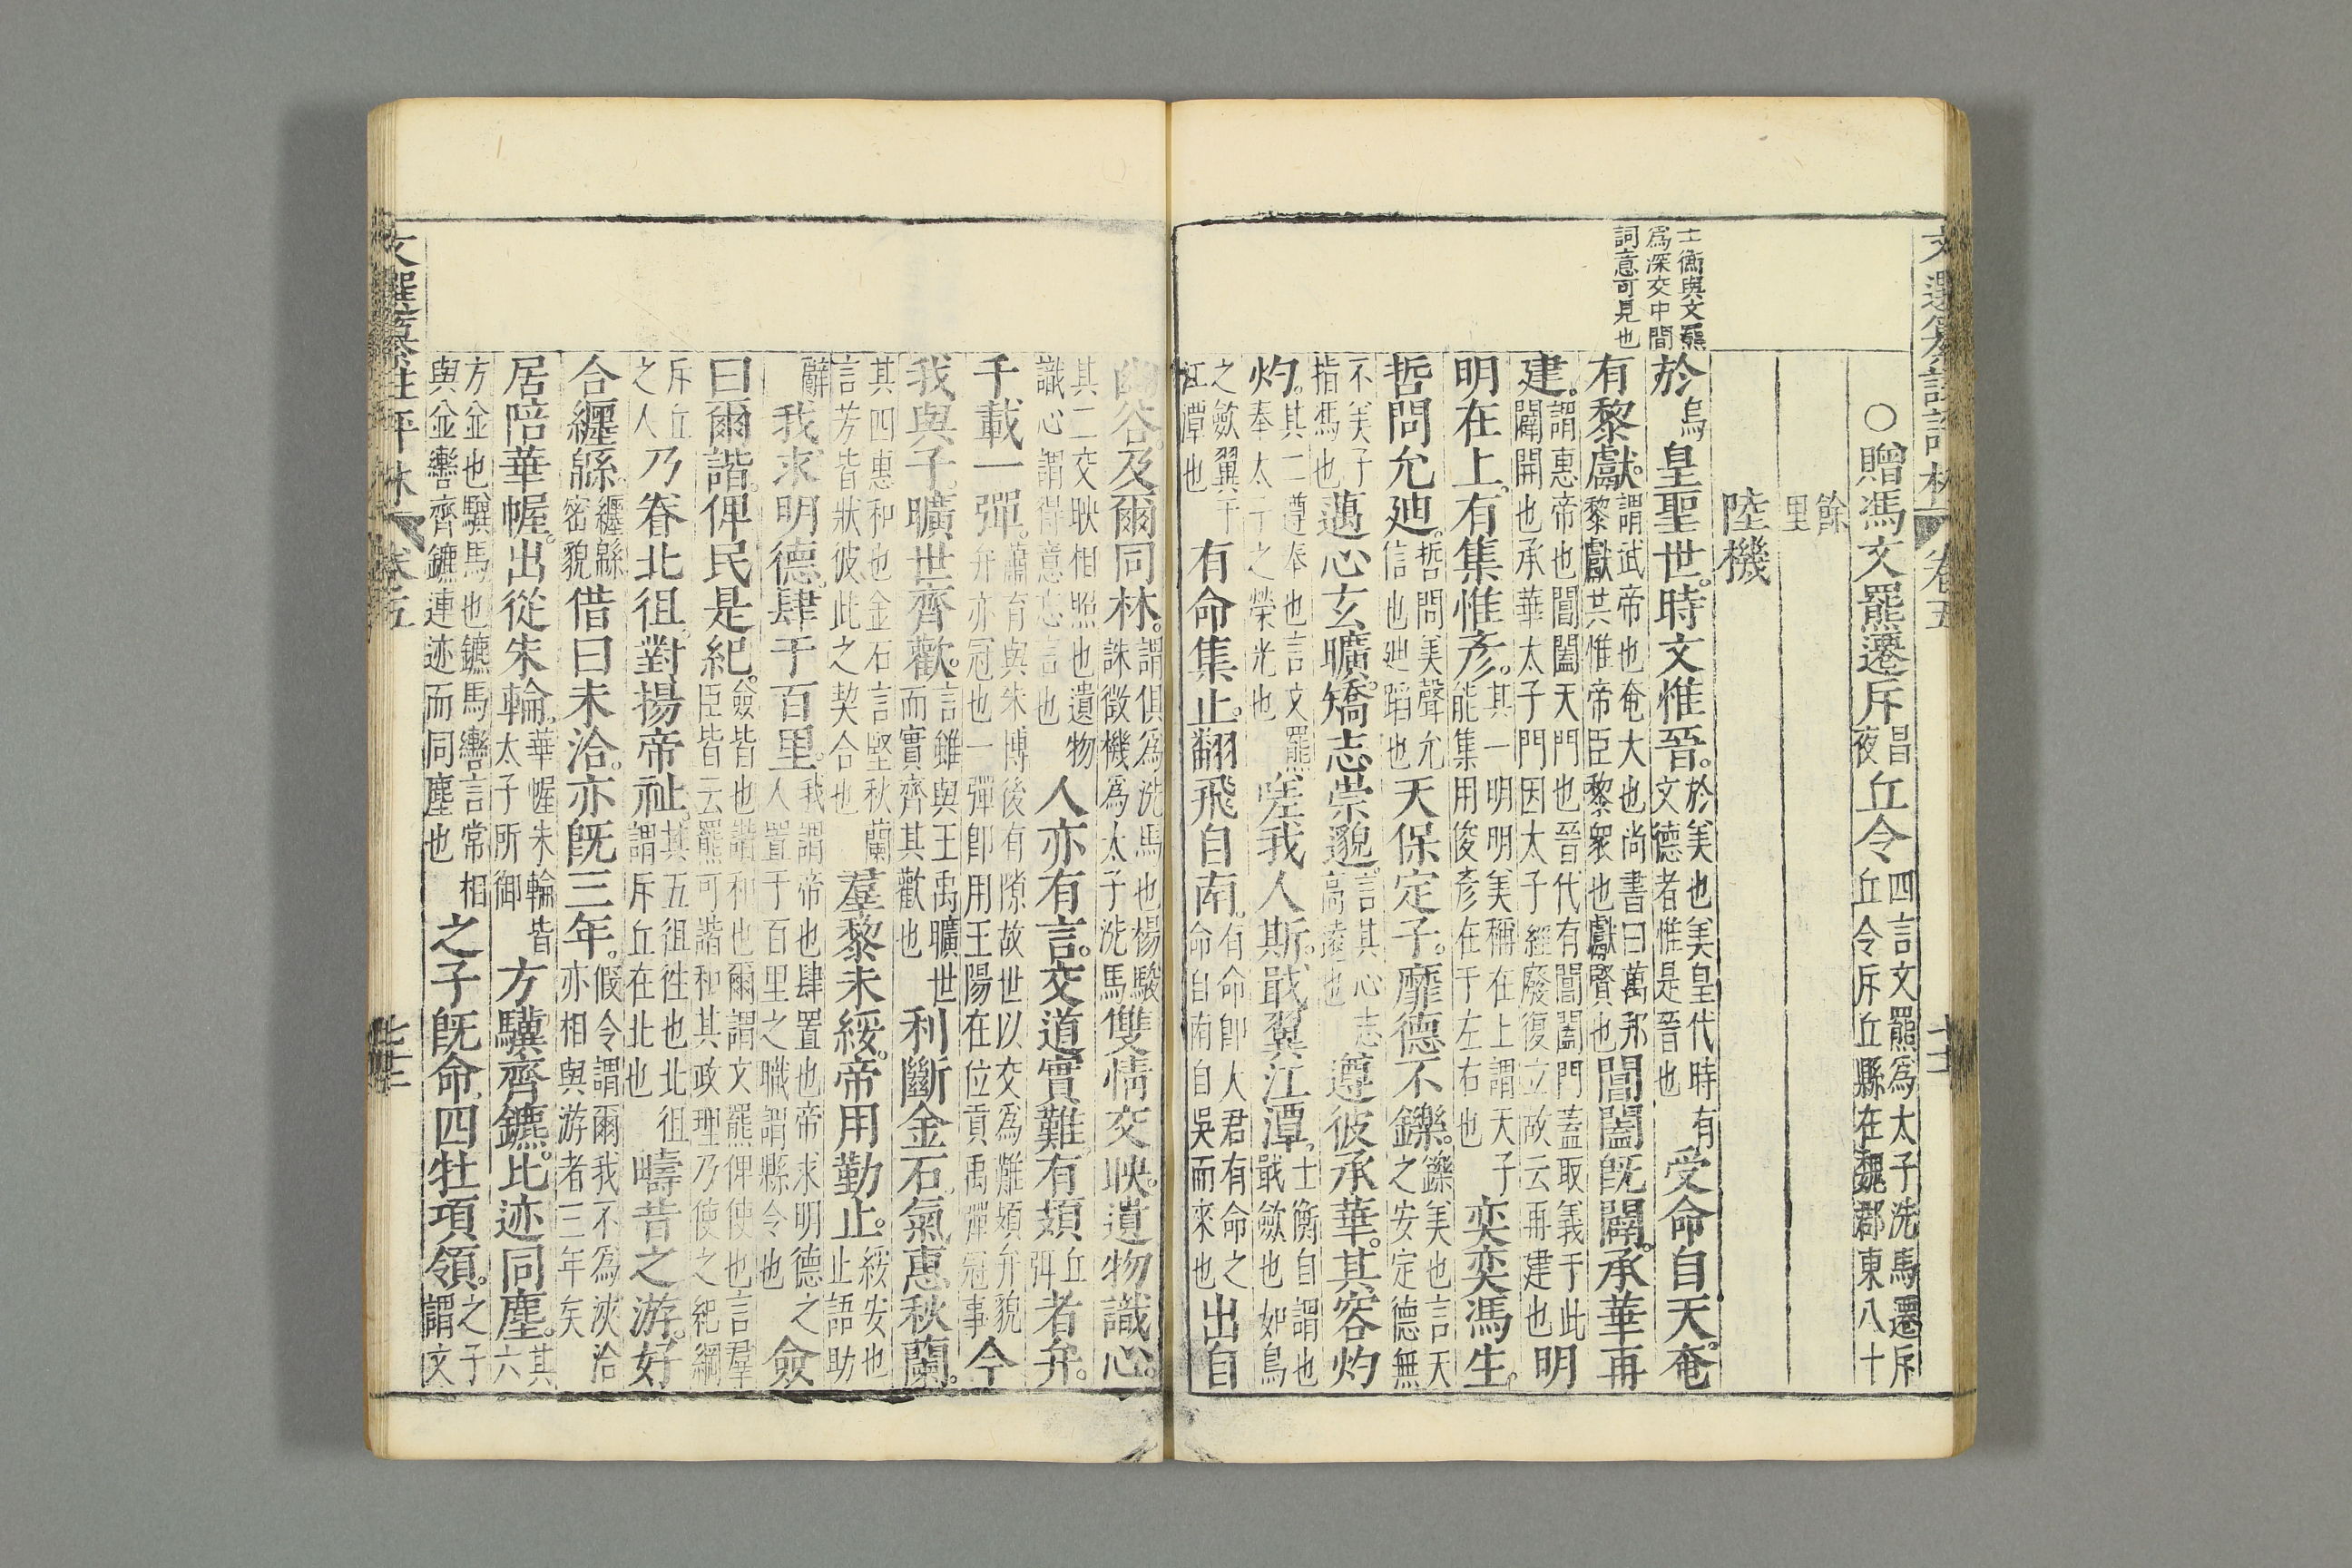 文選纂註評林　卷五　十二
○贈馮文羆遷斥昌夜丘令四言文羆為太子洗馬遷斥丘令斥丘縣在魏郡東八十
餘里
陸機
士衡與文羆
為深交中間
詞意可見也
於烏皇聖世。時文惟晉。於美也美皇代時有文德者惟是晉也受命自天。奄
有黎獻。謂武帝也奄大也尚書曰萬邦黎獻共惟帝臣黎衆也獻賢也閶闔旣闢。承華再
建。謂惠帝也閶闔天門也晉代有閶闔門蓋取義于此闢開也承華太子門因太子經廢復立故云再建也明
明在上。有集惟彥。其一明明美稱在上謂天子能集用俊彥在于左右也奕奕馮生。
哲問允廸。哲問美聲允信也廸蹈也天保定子。靡德不鑠。鑠美也言天之安定德無
不美子指馮也邁心玄曠。矯志崇邈。言其心志高遠也遵彼承華。其容灼
灼。其二遵奉也言文羆奉太子之榮光也嗟我人斯。戢翼江潭。士衡自謂也戢斂也如鳥
之斂翼于江潭也有命集止。翻飛自南。有命即大君有命之命自南自吳而來也出自
幽谷。及爾同林。謂俱為洗馬也楊駿誅徵機為太子洗馬雙情交映。遺物識心。
其二交映相照也遺物識心謂得意忘言也人亦有言。交道實難。有頍丘弭者弁。
千載一彈。蕭育與朱博後有隙故世以交為難頍弁貌弁亦冠也一彈卽用王陽在位貢禹彈冠事今
我與子。曠世齊歡。言雖與王禹曠世而實齊其歡也利斷金石。氣惠秋蘭。
其四惠和也金石言堅秋蘭言芳皆狀彼此之契合也羣黎未綏。帝用勤止。綏安也止語助
辭我求明德。肆于百里。我謂帝也肆置也帝求明德之人置于百里之職謂縣令也僉
曰爾諧。俾民是紀。僉皆也諧和也爾謂文羆俾使也言羣臣皆云羆可諧和其政理乃使之紀綱
斥丘之人乃眷北徂。對揚帝祉。其五徂徃也北徂謂斥丘在北也疇昔之游。好
合纏緜。纏緜密貌借曰未洽。亦旣三年。假令謂爾我不為浹洽亦相與游者三年矣
居陪華幄。出從朱輪。華幄朱輪皆太子所御方驥齊鑣。比迹同塵。其六
方並也驥馬也鑣馬轡言常相與並轡齊鑣連迹而同塵也之子旣命。四牡項領。之子謂文
文選纂註評林　卷五